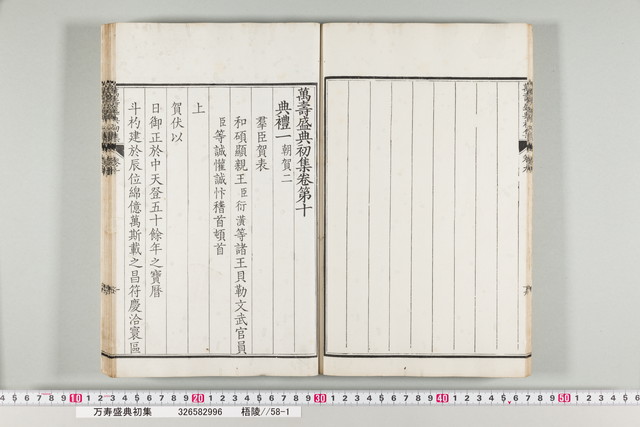 萬壽盛典初集卷第十
典禮一 朝賀二
羣臣賀表
和碩顯親王臣衍潢等諸王貝勒文武官員
臣等誠懽誠忭稽首頓首
上
賀伏以
日御正於中天登五十餘年之寶曆
斗杓建於辰位綿億萬斯載之昌符慶洽寰區
万寿盛典初集 326582996 梧陵//58-1